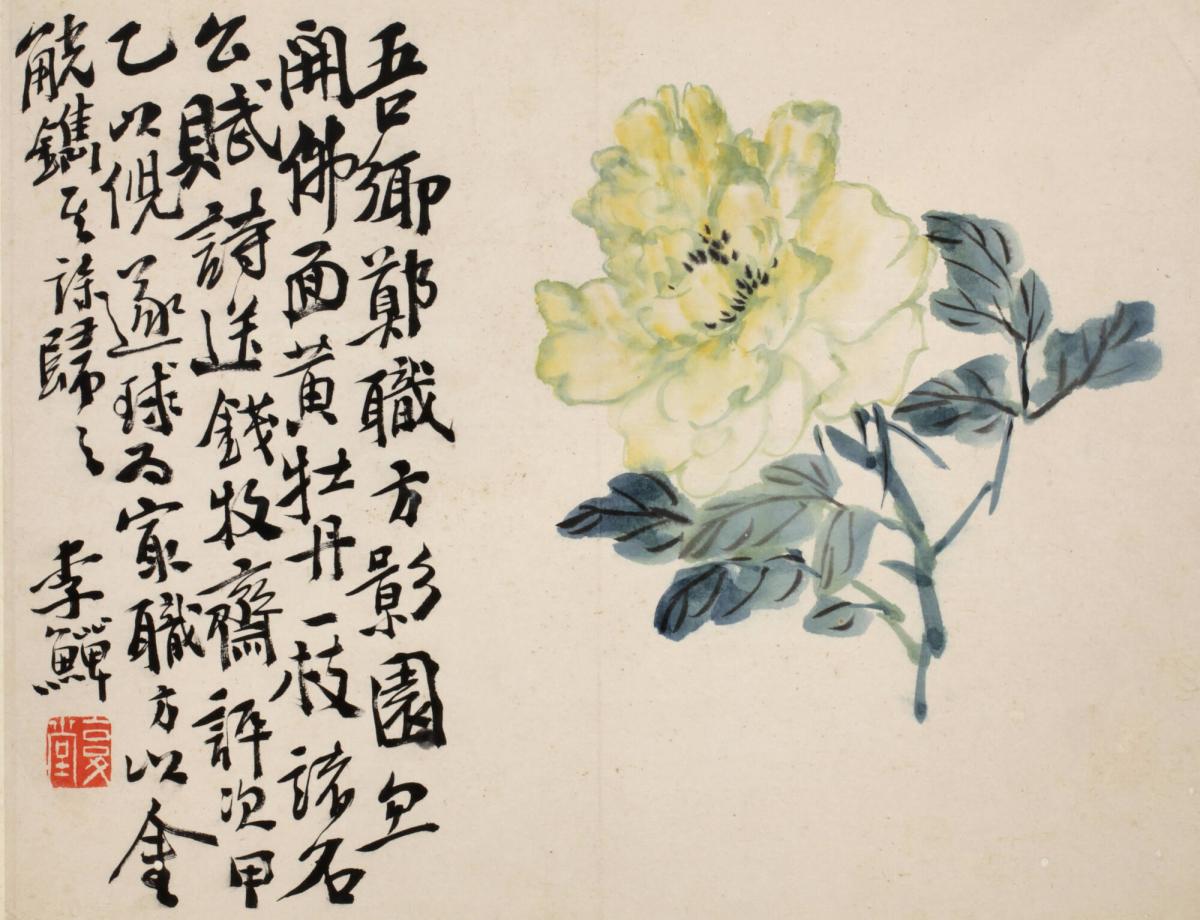 吾鄉鄭職方影園忽
開佛面黃牡丹一枝諸名
公賦詩送錢牧齋評次甲
乙以倪遂球為寂職方以金
觥鐫其詠歸之
李鱓